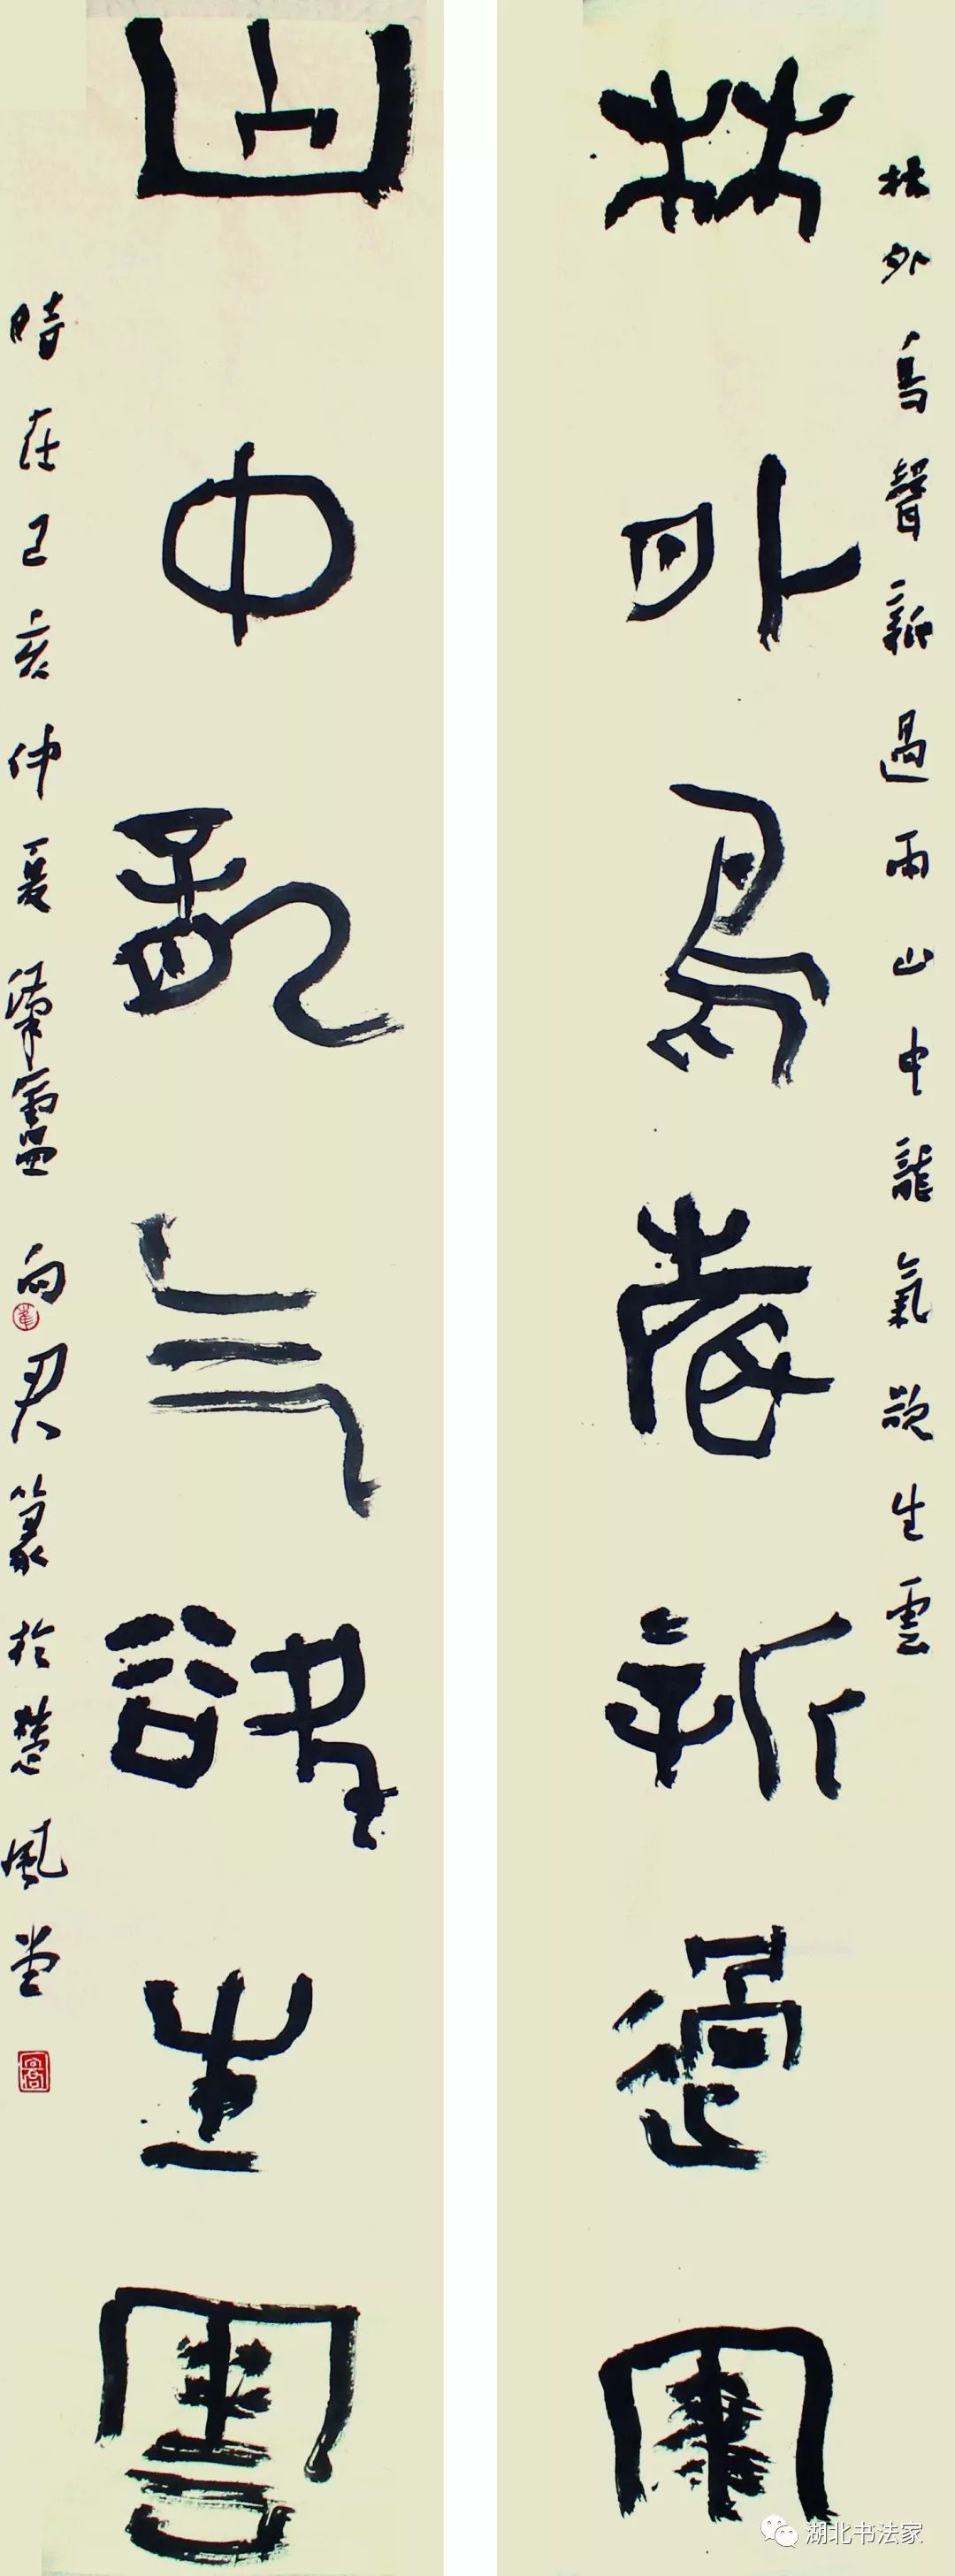 林外鳥聲新過雨山中龍氣欲生雲
林外鳥聲新過雨
山中龍气欲生雲
時在己亥仲夏向君篆於楚風堂
湖北书法家